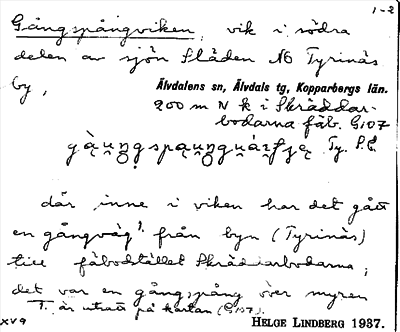 1-2
Gångspångviken, vik i södra
delen av sjön Fläden NO Tyrinäs
by,
Älvdalens sn, Älvdals tg, Kopparbergs län.
200 m N k i Skräddar-
bodarna fäb. G:107
Ty.
där inne i viken har det gått
en gångväg¹ från byn (Tyrinäs)
till fäbodstället Skräddarbodarna,
det var en gångspång över myren
1. är utsatt på kartan (G:107).
XV 9
HELGE LINDBERG 1937.